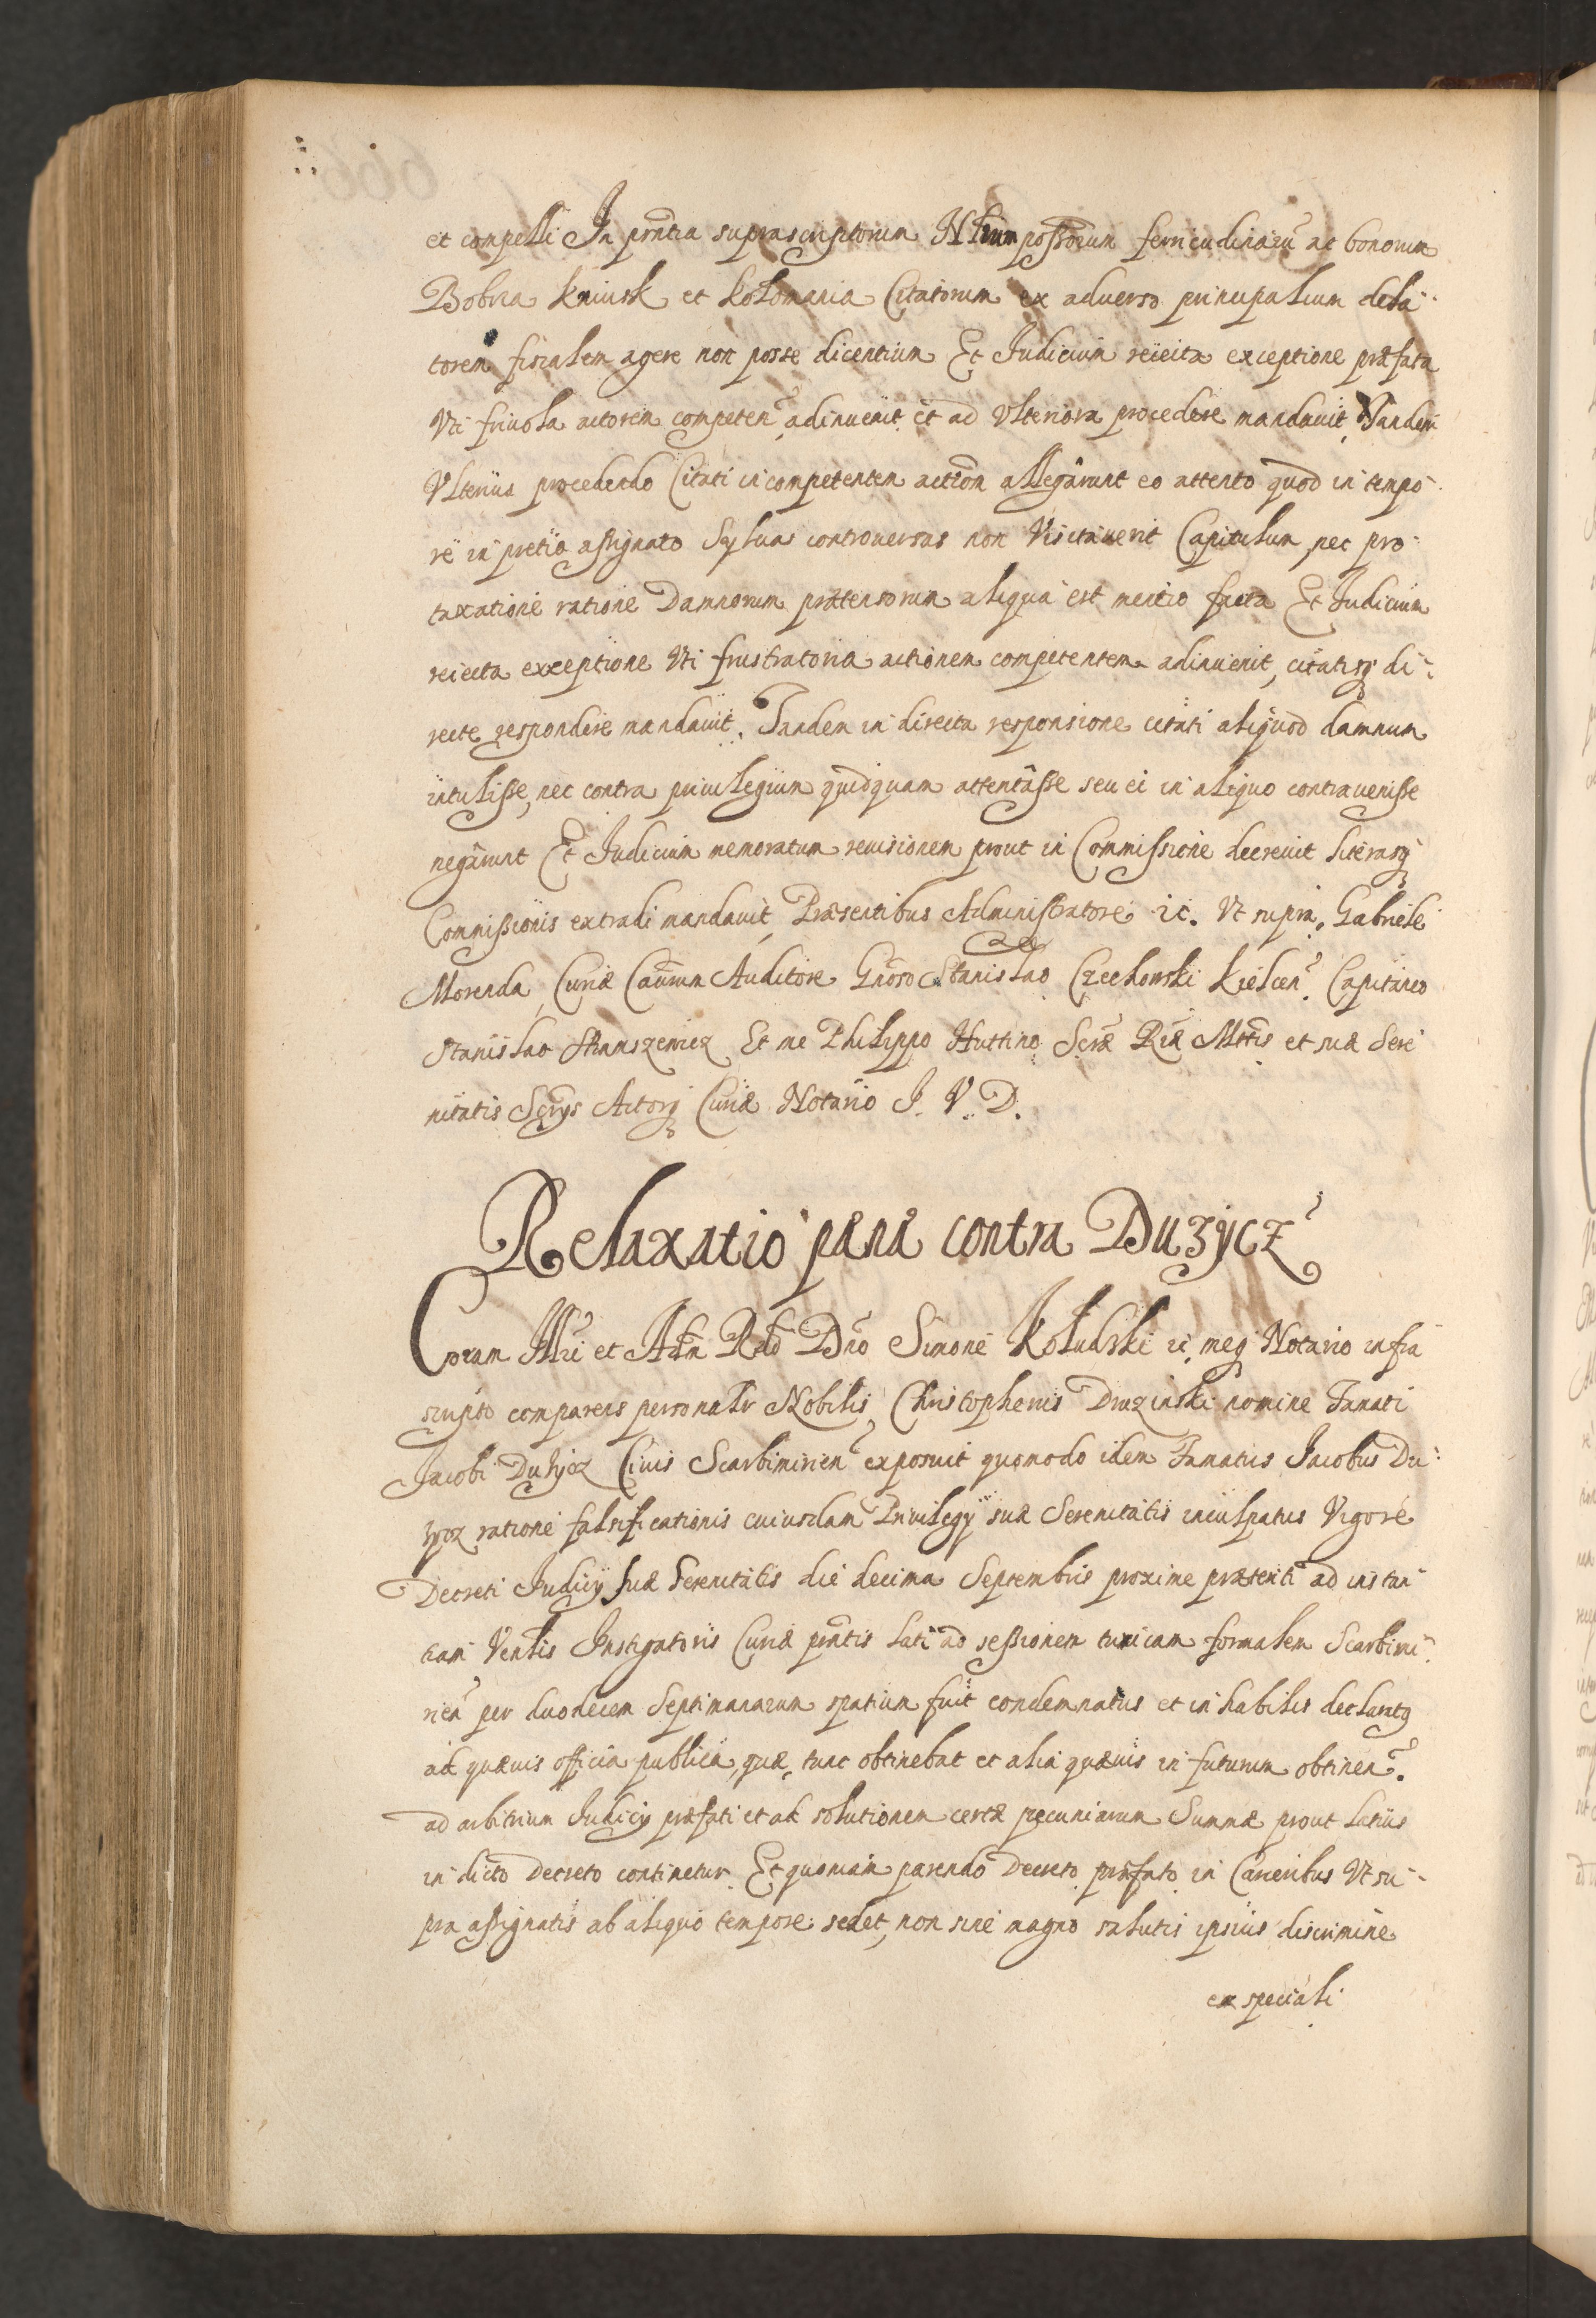 et compelli In pñtia suprascriptorum possorum ferricudinarũ ac bonorum
Bobrza kniusk et kolomania Citatorum ex aduerso principalium dela-
torem fiscalem agere non posse dicentium Et Iudicium reiecta exceptione præfata
Vti friuola actorem competeñ adinuenit et ad Vlteriora procedere mandauit, Tandem
Vlterius procedendo Citati incompetentem actioñ allegârunt eo attento quod in tempo-
re in pretio assignato Syluas controuersas non Visitauerit Capitulum, nec pro
taxatione ratione Damnorum prætensorum aliqua est mentio facta Et Iudicium
reiecta exceptione Vti frustratoria actionem competentem adinuenit, citatisq; di-
recte respondere mandauit. Tandem in directa responsione citati aliquod damnum
intulisse, nec contra priuilegium quidquam attentâsse seu ei in aliquo contrauenisse
negârunt Et Iudicium memoratum reuisionem prout in Commissione decreuit literasq;
Commissionis extradi mandauit, Præsentibus Administratore ec. Vt supra. Gabriele
Morenda Curiæ Cauñrum Auditore Gñoso Stanislao Czechowski kielceñ Capitaneo
Stanislao Et me Philippo Huttino Scræ Riæ Mttis et suæ Sere
nitatis Scrijs Actorq; Curiæ Notario I. V. D.
Relaxatio pænæ contra Duzycz
Coram Illri et Adm Rdo Dño Simone Koludzki ec meq; Notario infra
scripto comparens personalr Nobilis Christophorus Druzinski nomine Famati
Iacobi Duzycz Ciuis Scarbimirieñ exposuit quomodo idem Famatus Iacobus Du-
zycz ratione falsificationis cuiusdam Priuilegij suæ Serenitatis inculpatus Vigore
Decreti Iudicij suæ Serenitatis die decima Septembris proxime præteriti ad instan-
tiam Venlis Instigatoris Curiæ pñtis lati ad sessionem turricam formalem Scarbimi-
rieñ per duodecem Septimanarum spatium fuit condemnatus et inhabilis declaratq;
ad quæuis officia publica, quæ tunc obtinebat et alia quæuis in futurum obtineñ.
ad arbitrium Iudicij præfati et ad solutionem certæ pecuniarum Summæ prout latius
in dicto Decreto continetur. Et quoniam parendo Decreto præfato in Carceribus Vt su-
pra assignatis ab aliquo tempore sedet, non sine magno salutis ipsius discrimine
ex speciali